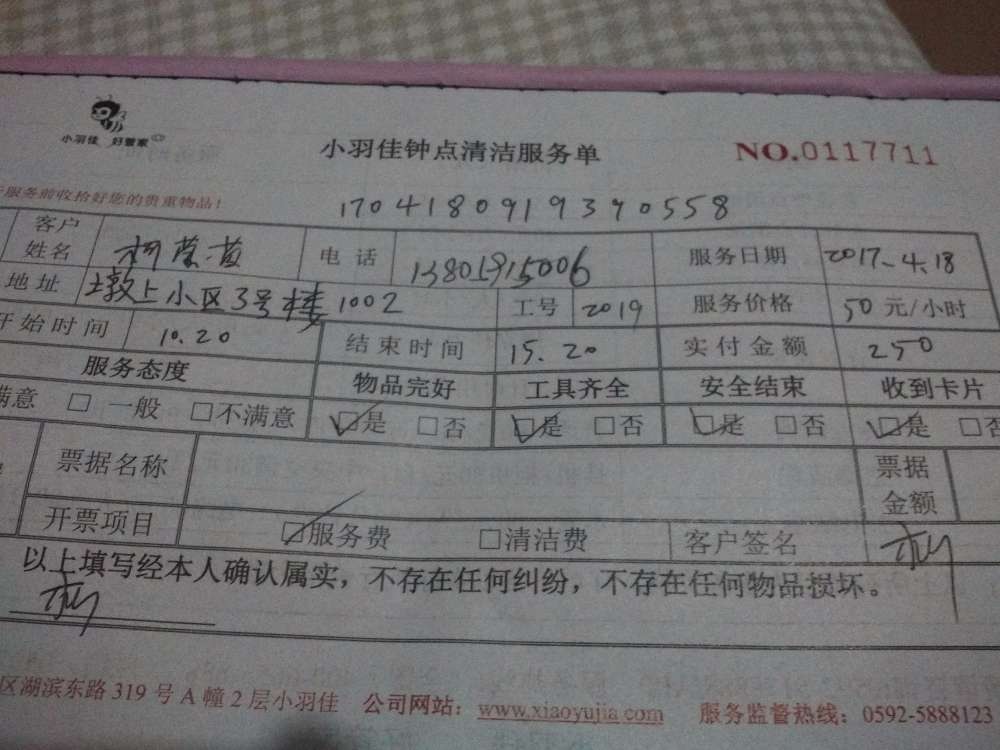 小羽佳 好管家
小羽佳钟点清洁服务单 NO.0117711
服务前收拾好您的贵重物品！
17041809193790558
客户姓名 柯 电话 13801915006 服务日期 2017.4.18
地址 墩上小区3号楼1002 工号 2019 服务价格 50元/小时
开始时间 10.20 结束时间 15.20 实付金额 250
服务态度 物品完好 工具齐全 安全结束 收到卡片
满意 □ 一般 □不满意 ☑是 □否 ☑是 □否 ☑是 □否 ☑是 □否
票据名称 票据金额
开票项目 ☑服务费 □清洁费 客户签名 柯
以上填写经本人确认属实，不存在任何纠纷，不存在任何物品损坏。
柯
区湖滨东路319号A幢2层小羽佳 公司网站：www.xiaoyujia.com 服务监督热线：0592-5888123